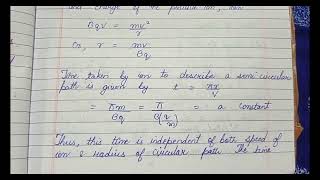 and charge of the positive ion, then
Bqv = mv²/r
Or, r = mv/Bq
Time taken by ion to describe a semi-circular
path is given by t = πr/v
= πm/Bq = π/B(q/m) = a constant
Thus, this time is independent of both speed of
ion & radius of circular path. The time